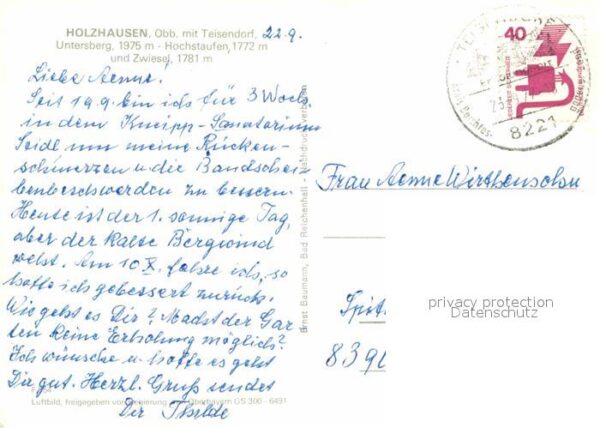 HOLZHAUSEN, Obb. mit Teisendorf,
Untersberg, 1975 m - Hochstaufen, 1772 m
und Zwiesel, 1781 m
22.9.
Liebe Aenne.
Seit 19.9. bin ich für 3 Woch.
in dem Kneipp-Sanatorium
Seidl um meine Rücken-
schmerzen u. die Bandschei
benbeschwerden zu bessern.
Heute ist der 1. sonnige Tag,
aber der kalte Bergwind
weht. Am 10.X. fahre ich, so
hoffe ich gebessert zurück.
Wie geht es Dir? Macht der Gar
ten keine Erholung möglich?
Ich wünsche u. hoffe es geht
Dir gut. Herzl. Gruß sendet
Dir Thilde
Luftbild, freigegeben von Regierung von Oberbayern GS 300 - 6491
Ernst Baumann, Bad Reichenhall - Nachdruck verboten
40
DEUTSCHE BUNDESPOST
8221
Frau Aenne Wirthensohn
privacy protection
Datenschutz